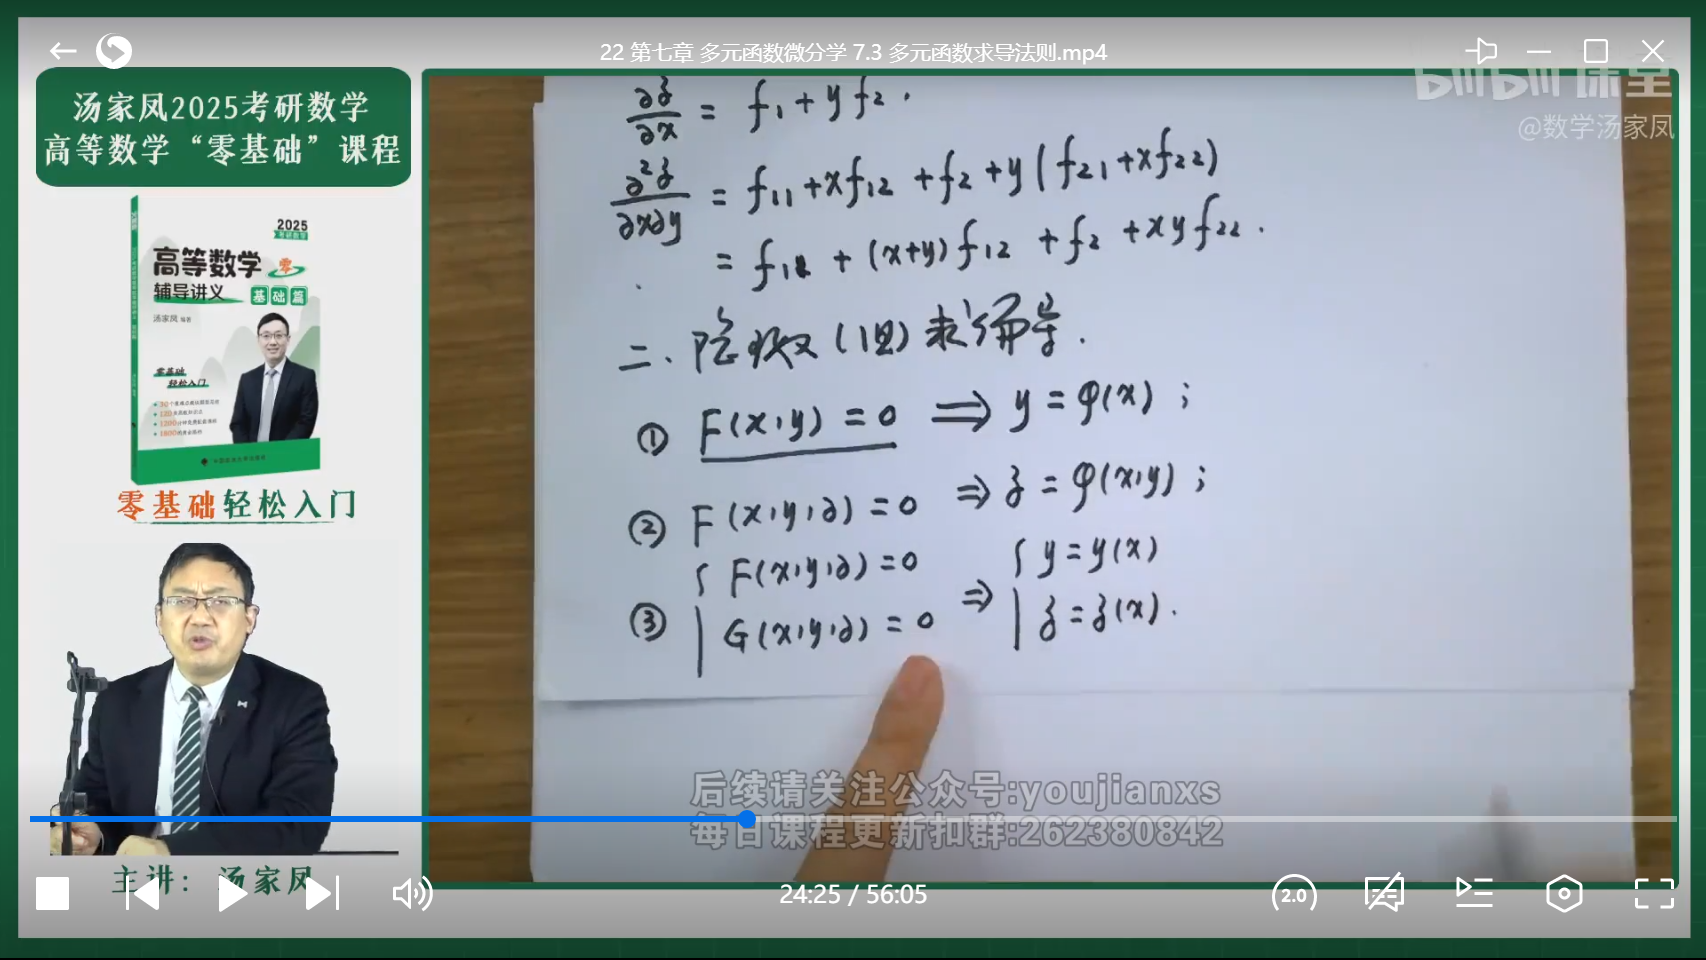 22 第七章 多元函数微分学 7.3 多元函数求导法则.mp4
bilibili 课堂
@数学汤家凤
汤家凤2025考研数学
高等数学“零基础”课程
2025
考研数学
高等数学 零
辅导讲义
基础篇
汤家凤 编著
零基础
轻松入门
零基础轻松入门
∂z/∂x = f₁ + y f₂ .
∂²z/∂x∂y = f₁₁ + x f₁₂ + f₂ + y ( f₂₁ + x f₂₂ )
= f₁₁ + (x+y) f₁₂ + f₂ + x y f₂₂ .
二. 隐函数(组)求偏导.
① F(x,y) = 0 ⇒ y = φ(x) ;
② F(x,y,z) = 0 ⇒ z = φ(x,y) ;
③ { F(x,y,z) = 0
G(x,y,z) = 0 ⇒ { y = y(x)
z = z(x) .
后续请关注公众号:youjianxs
每日课程更新扣群:262380842
主讲: 汤家凤
24:25 / 56:05
2.0